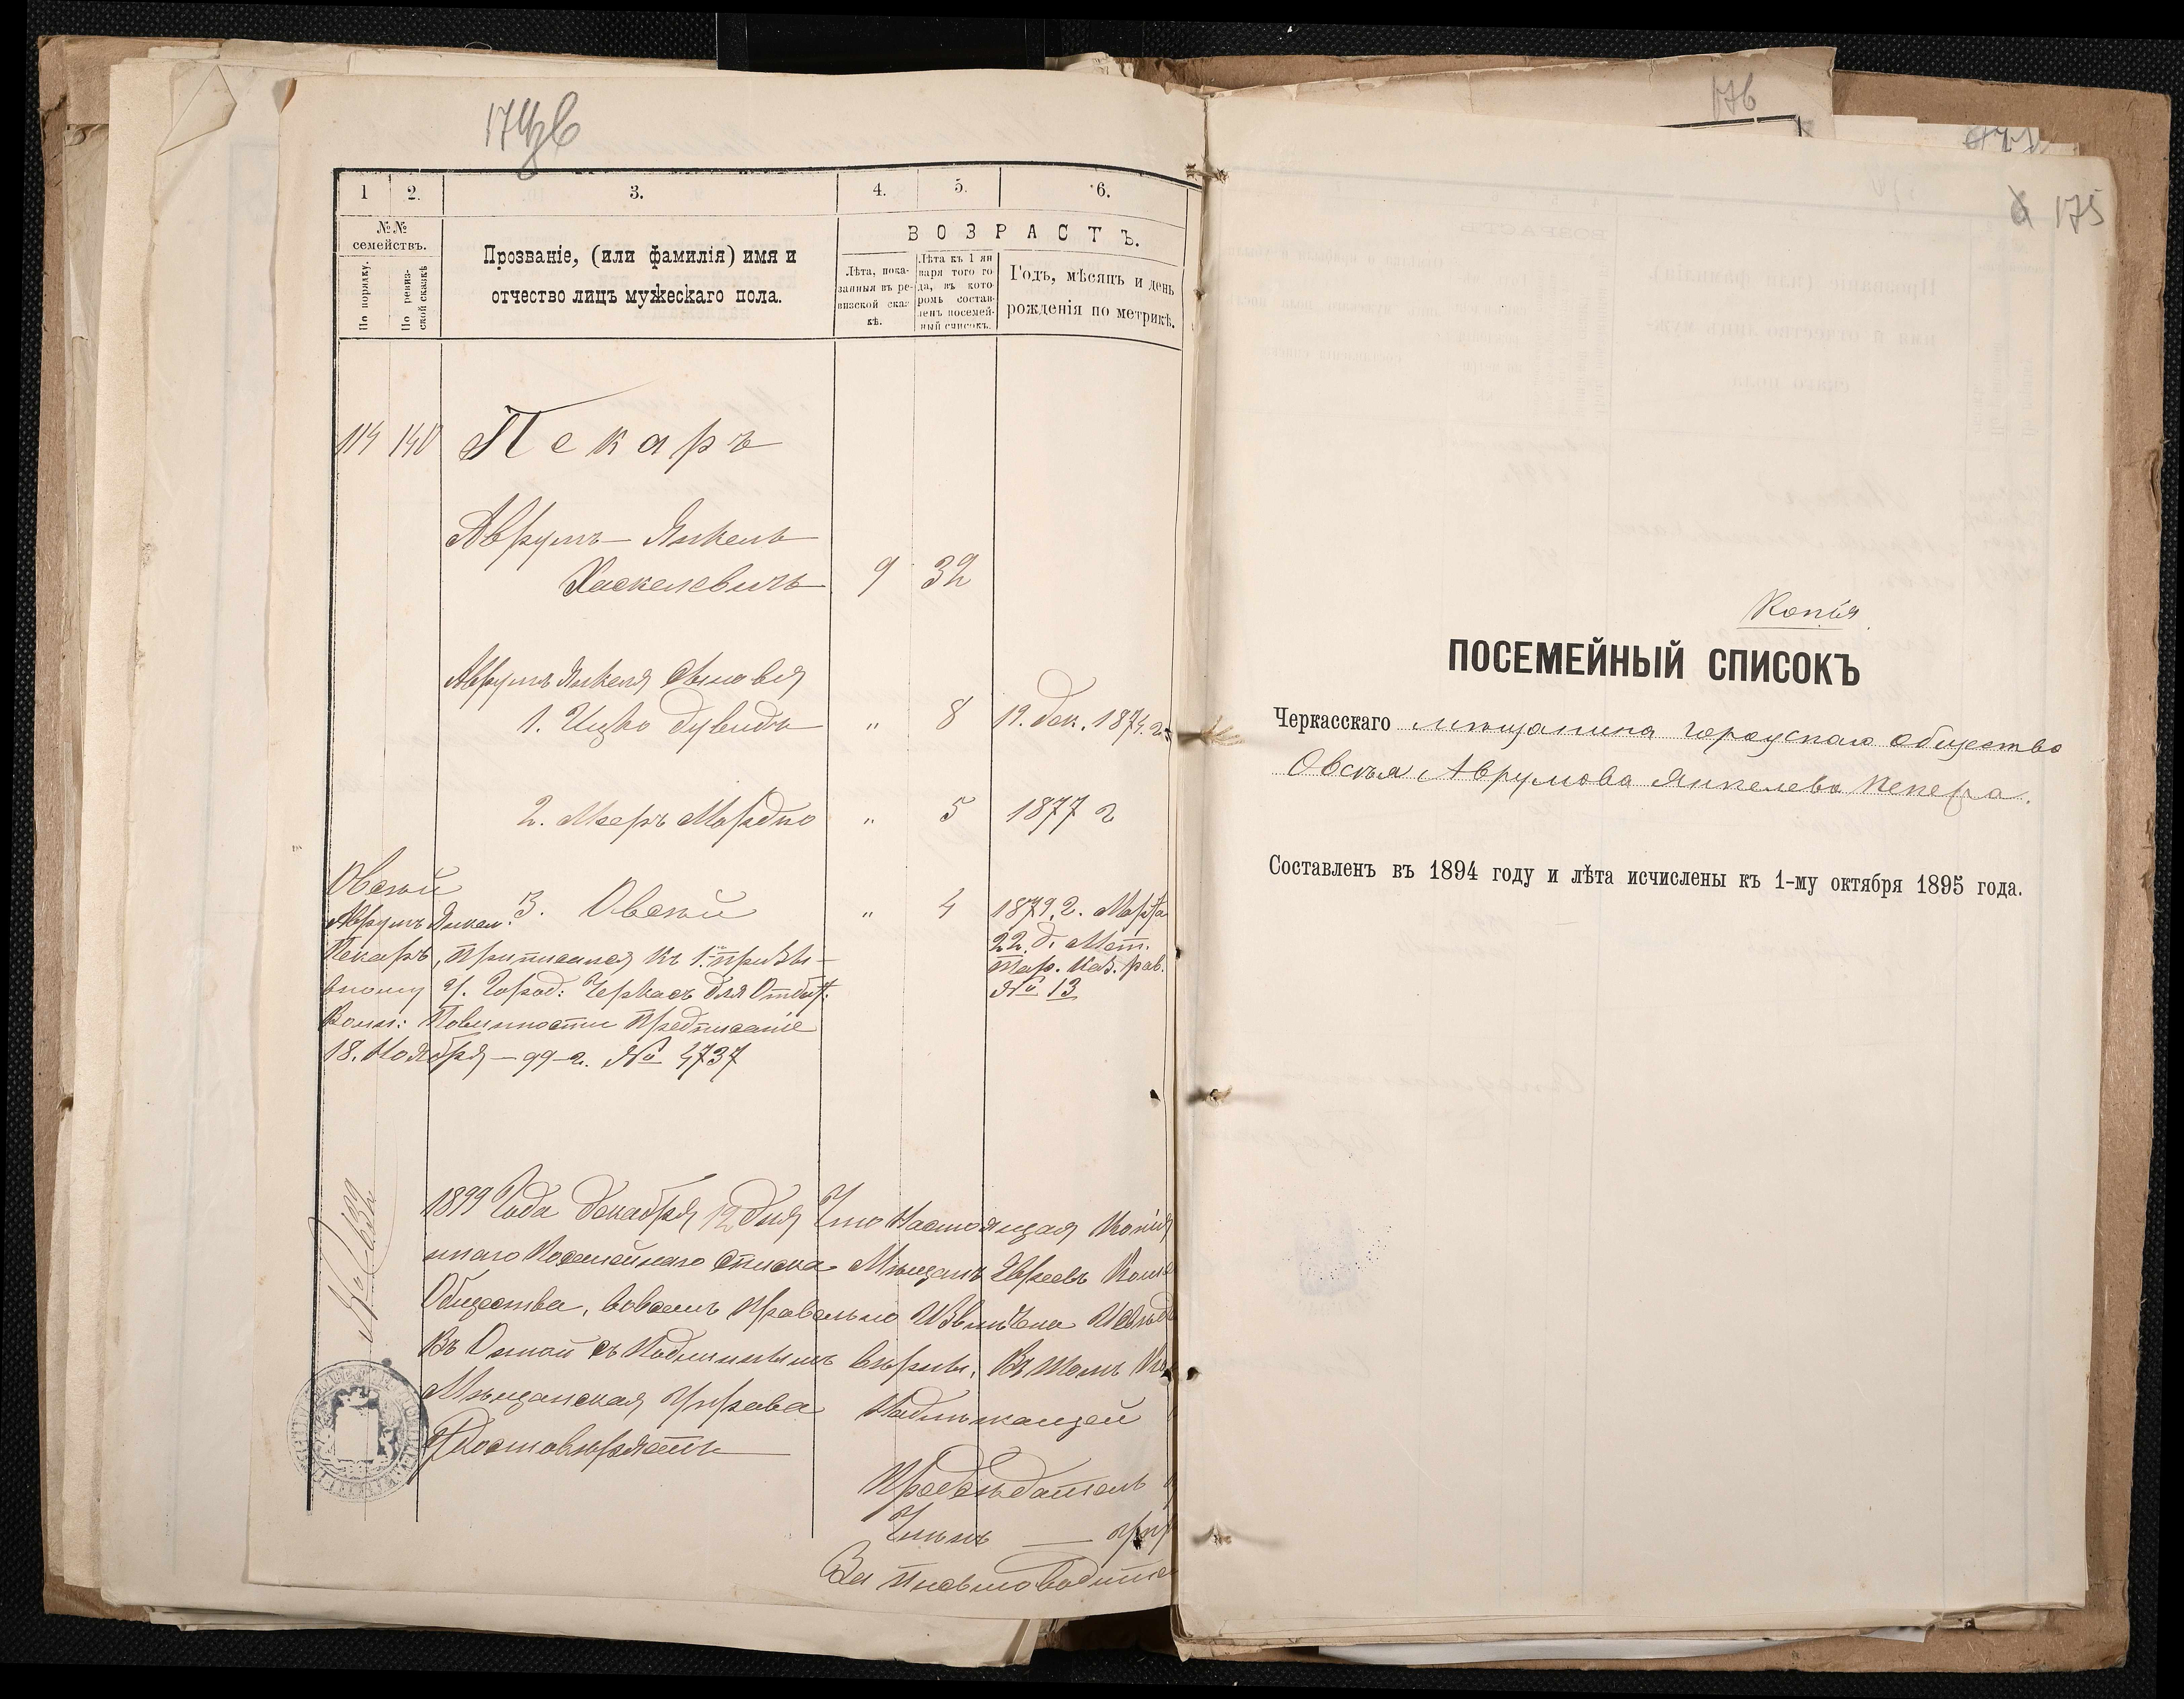 1 2. 3. 4. 5. 6.
№№ семействъ.
По порядку.
По ревиз-
ской сказкѣ
Прозваніе, (или фамилія) имя и
отчество лицъ мужескаго пола.
ВОЗРАСТЪ.
Лѣта, пока-
занныя въ ре-
визской сказ-
кѣ.
Лѣта къ 1 ян
варя того го
да, въ кото
ромъ состав-
ленъ посемей-
ный списокъ.
Годъ, мѣсяцъ и день
рожденія по метрикѣ.
114 140 Пекаръ
Аврумъ-Янкель
Хаскелевичъ 9 32
Аврумъ Янкеля Сыновья
1. Ицко Дувидъ „ 8 19. Дек. 1874 г.
2. Мееръ Мордко „ 5 1877 г
Овсѣй
3. Овсѣй „ 4 1879 г. Марта
22 д. Мет.
№ 13
Аврумъ Янкел.
Пекаръ, приписался къ 1. призы-
вному уч. Город: Черкасъ для Отбыт.
Воин: Повинности Предписаніе
18. Ноября - 99 г. № 4737
1899 Года Декабря 12 дня Что Настоящая Копія
ннаго Посемейнаго Списка Мѣщанъ Евреевъ
Общества, вовсемъ правельно
Въ Онной съ Подлиннымъ вѣрны, Въ томъ
Мѣщанская Управа Надлежащей
Удостовѣряетъ
Предсѣдатель
Членъ
За Письмоводите
176
175
Копія
ПОСЕМЕЙНЫЙ СПИСОКЪ
Черкасскаго мѣщанина городскаго общество
Овсѣя Аврумова Янкелева Пекера.
Составленъ въ 1894 году и лѣта исчислены къ 1-му октября 1895 года.